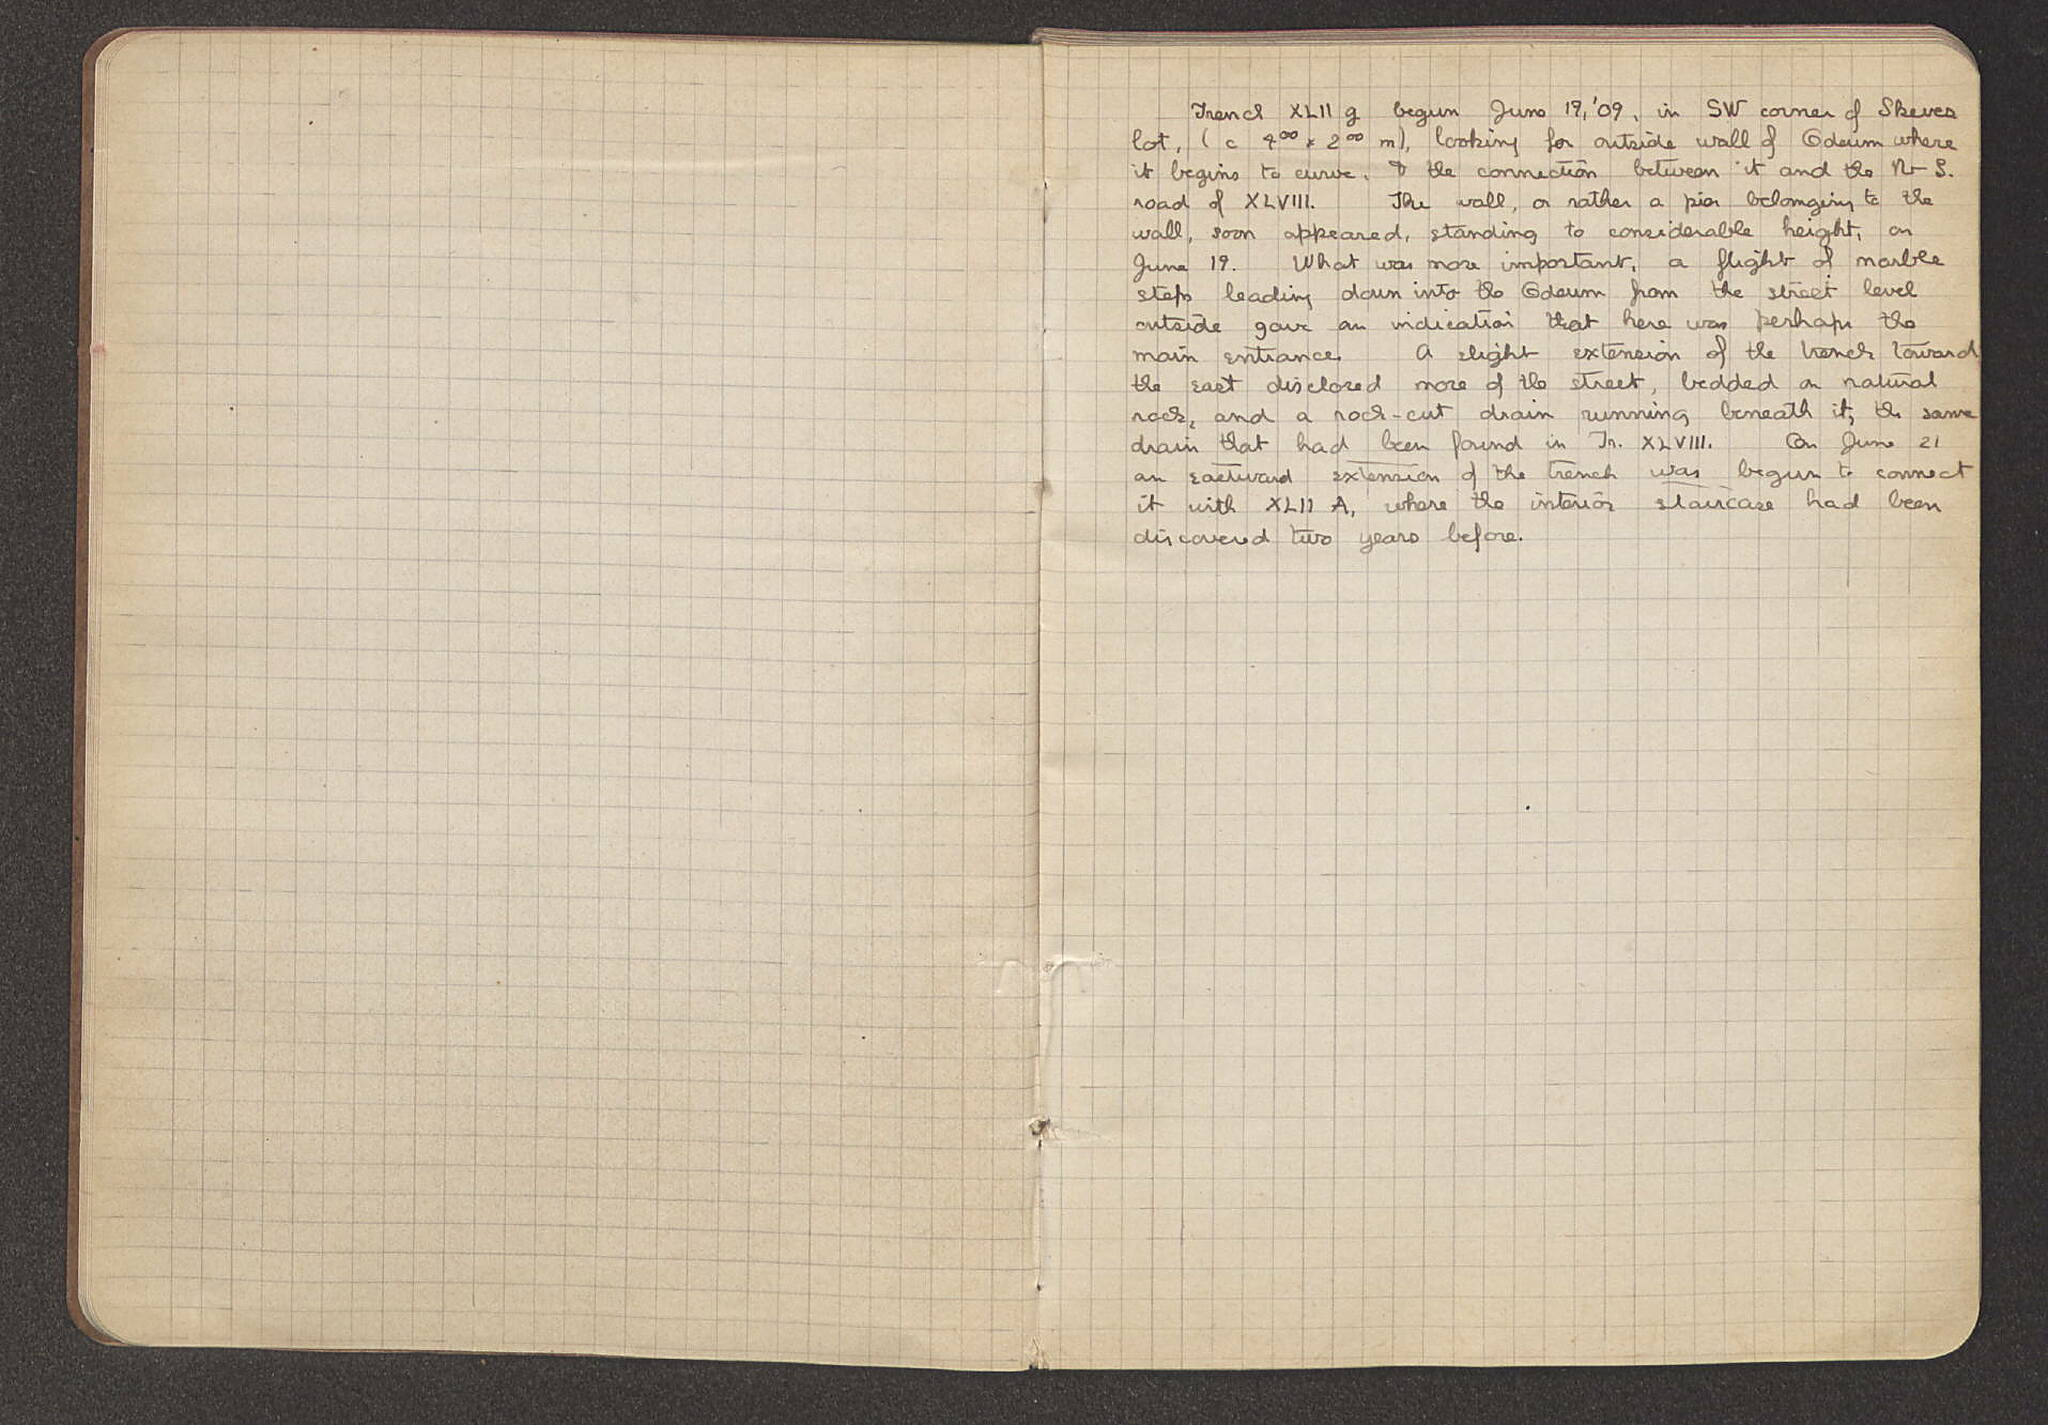 Trench XLII g begun June 19, '09, in SW corner of Skeves
lot, (c 4⁰⁰ x 2⁰⁰ m), looking for outside wall of Odeum where
it begins to curve, & the connection between it and the N-S.
road of XLVIII. The wall, or rather a pier belonging to the
wall, soon appeared, standing to considerable height, on
June 19. What was more important, a flight of marble
steps leading down into the Odeum from the street level
outside gave an indication that here was perhaps the
main entrance. A slight extension of the trench toward
the east disclosed more of the street, bedded on natural
rock, and a rock-cut drain running beneath it, the same
drain that had been found in Tr. XLVIII. On June 21
an eastward extension of the trench was begun to connect
it with XLII A, where the interior staircase had been
discovered two years before.